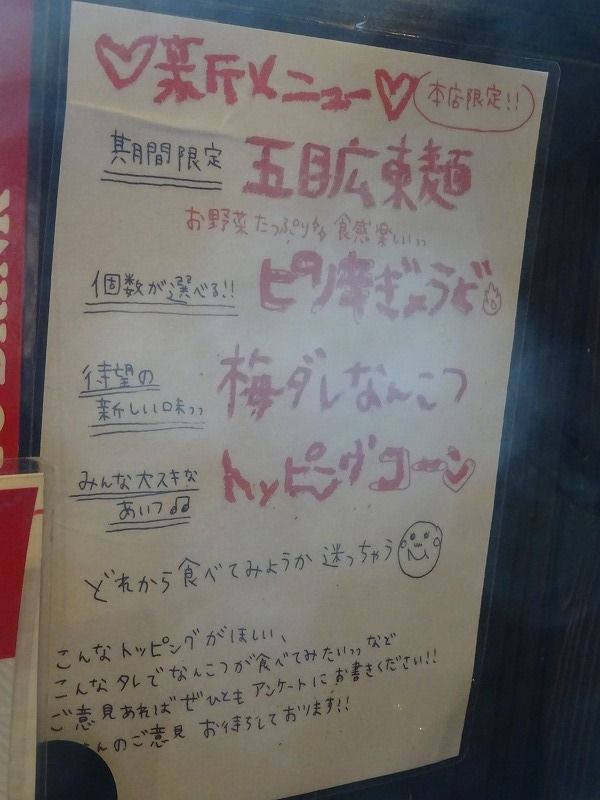 ♡新メニュー♡ 本店限定!!
期間限定 五目広東麺
お野菜たっぷりな食感楽しいっっ
個数が選べる!! ピリ辛ぎょうざ
待望の
新しい味っっ 梅ダレなんこつ
みんな大スキな
あいつ♫ トッピングコーン
どれから食べてみようか迷っちゃう
こんなトッピングがほしい、
こんなタレでなんこつが食べてみたいっっなど
ご意見あればぜひともアンケートにお書きください!!
んのご意見お待ちしております!!